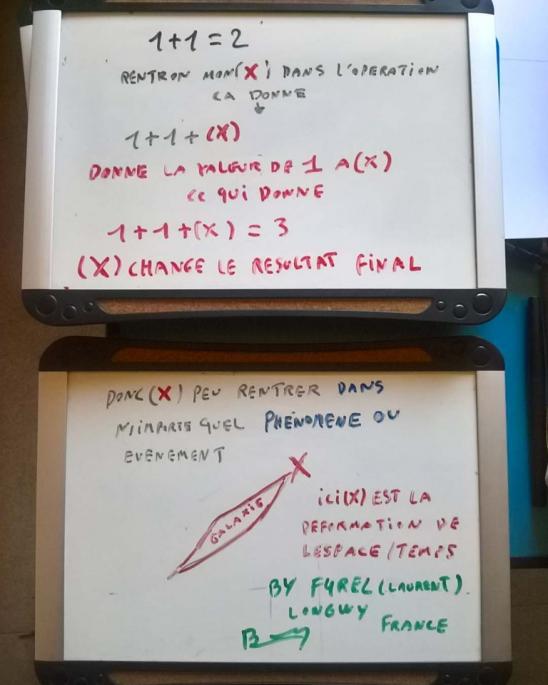 1+1=2
RENTRON MON(X) DANS L'OPERATION
CA DONNE
1+1+(X)
DONNE LA VALEUR DE 1 A(X)
CE QUI DONNE
1+1+(X) = 3
(X) CHANGE LE RESULTAT FINAL
DONC (X) PEU RENTRER DANS
N'IMPORTE QUEL PHENOMENE OU
EVENEMENT
X
GALAXIE
ici(X) EST LA
DEFORMATION DE
LESPACE/TEMPS
BY FYREL (LAURENT)
LONGWY
FRANCE